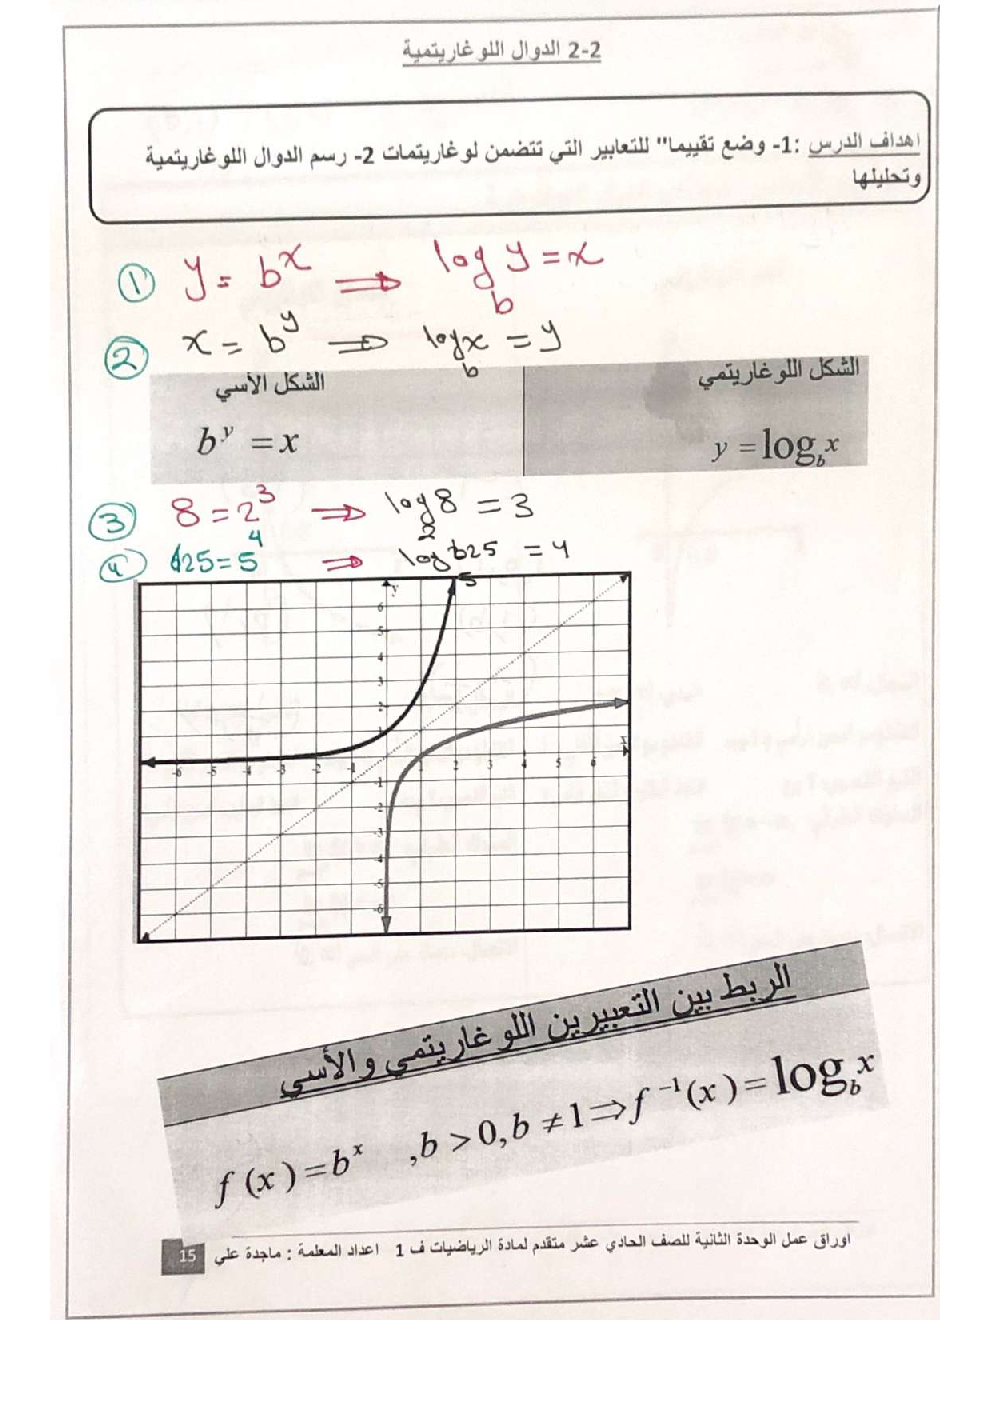 2-2 الدوال اللوغاريتمية
اهداف الدرس :1- وضع تقييما" للتعابير التي تتضمن لوغاريتمات 2- رسم الدوال اللوغاريتمية
وتحليلها
① y = b^x ⟹ log_b y = x
② x = b^y ⟹ log_b x = y
الشكل الأسي الشكل اللوغاريتمي
b^y = x y = log_b x
③ 8 = 2^3 ⟹ log_2 8 = 3
④ 625 = 5^4 ⟹ log_5 625 = 4
y
6
5
4
3
2
1
x
-6 -5 -4 -3 -2 -1 1 2 3 4 5 6
-1
-2
-3
-4
-5
-6
الربط بين التعبيرين اللوغاريتمي والأسي
f(x) = b^x , b > 0, b ≠ 1 ⇒ f^{-1}(x) = log_b x
اوراق عمل الوحدة الثانية للصف الحادي عشر متقدم لمادة الرياضيات ف 1 اعداد المعلمة : ماجدة علي 15